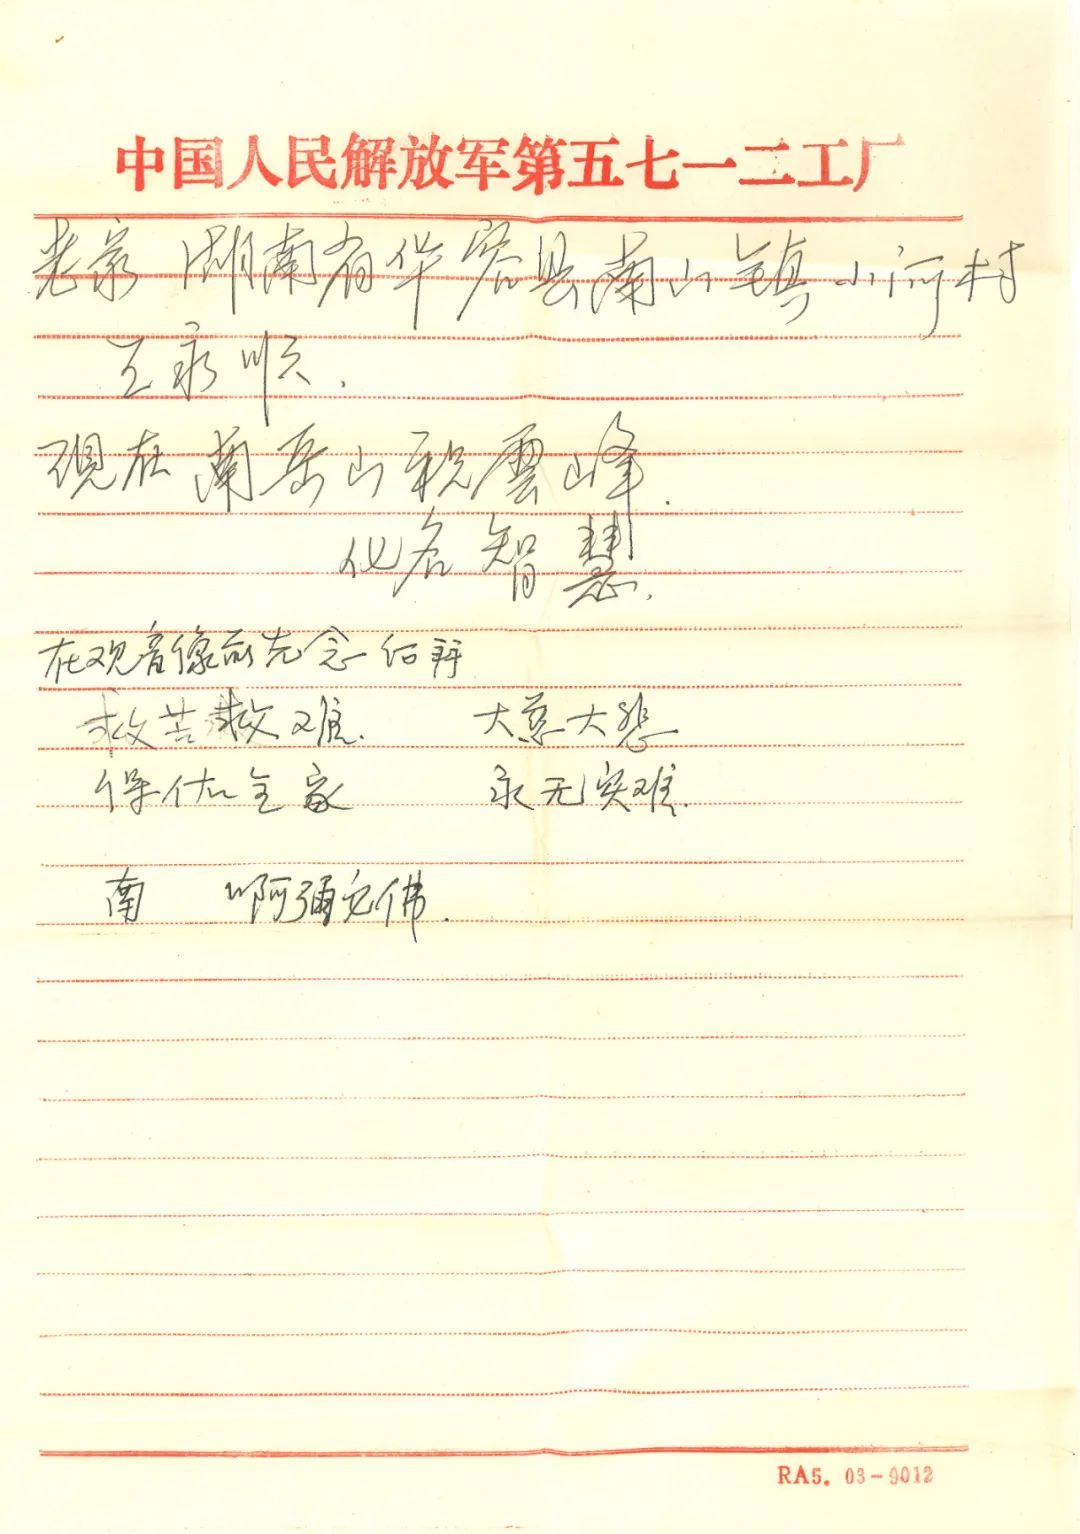 中国人民解放军第五七一二工厂
老家 湖南省华容县南山镇小河村
王永顺.
现在南岳山祝雲峰.
化名智慧.
在观音像前先念
救苦救难. 大慈大悲
保佑全家 永无灾难.
南 阿弥陀佛.
RA5. 03-9012